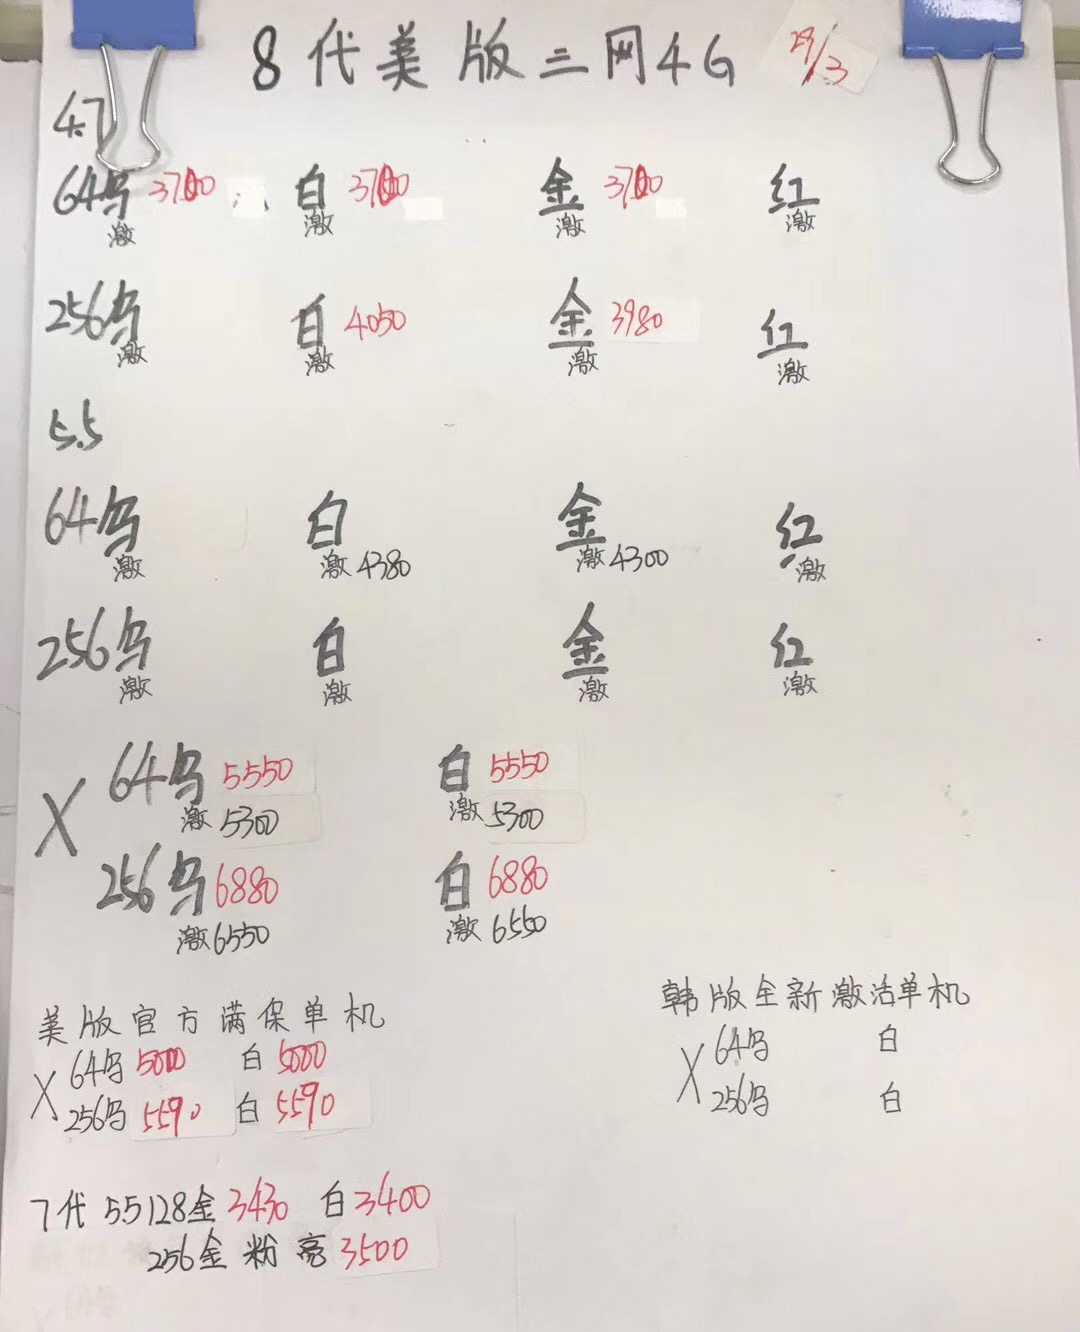 8代美版三网4G 29/3
4.7
64乌 3700 白 3700 金 3700 红
激 激 激 激
256乌 白 4050 金 3980 红
激 激 激 激
5.5
64乌 白 金 红
激 激 4380 激 4300 激
256乌 白 金 红
激 激 激 激
X 64乌 5550 白 5550
激 5300 激 5300
256乌 6880 白 6880
激 6550 激 6550
美版官方满保单机
X 64乌 5000 白 5000
256乌 5590 白 5590
韩版全新激活单机
X 64乌 白
256乌 白
7代 5.5 128金 3430 白 3400
256金 粉 亮 3500